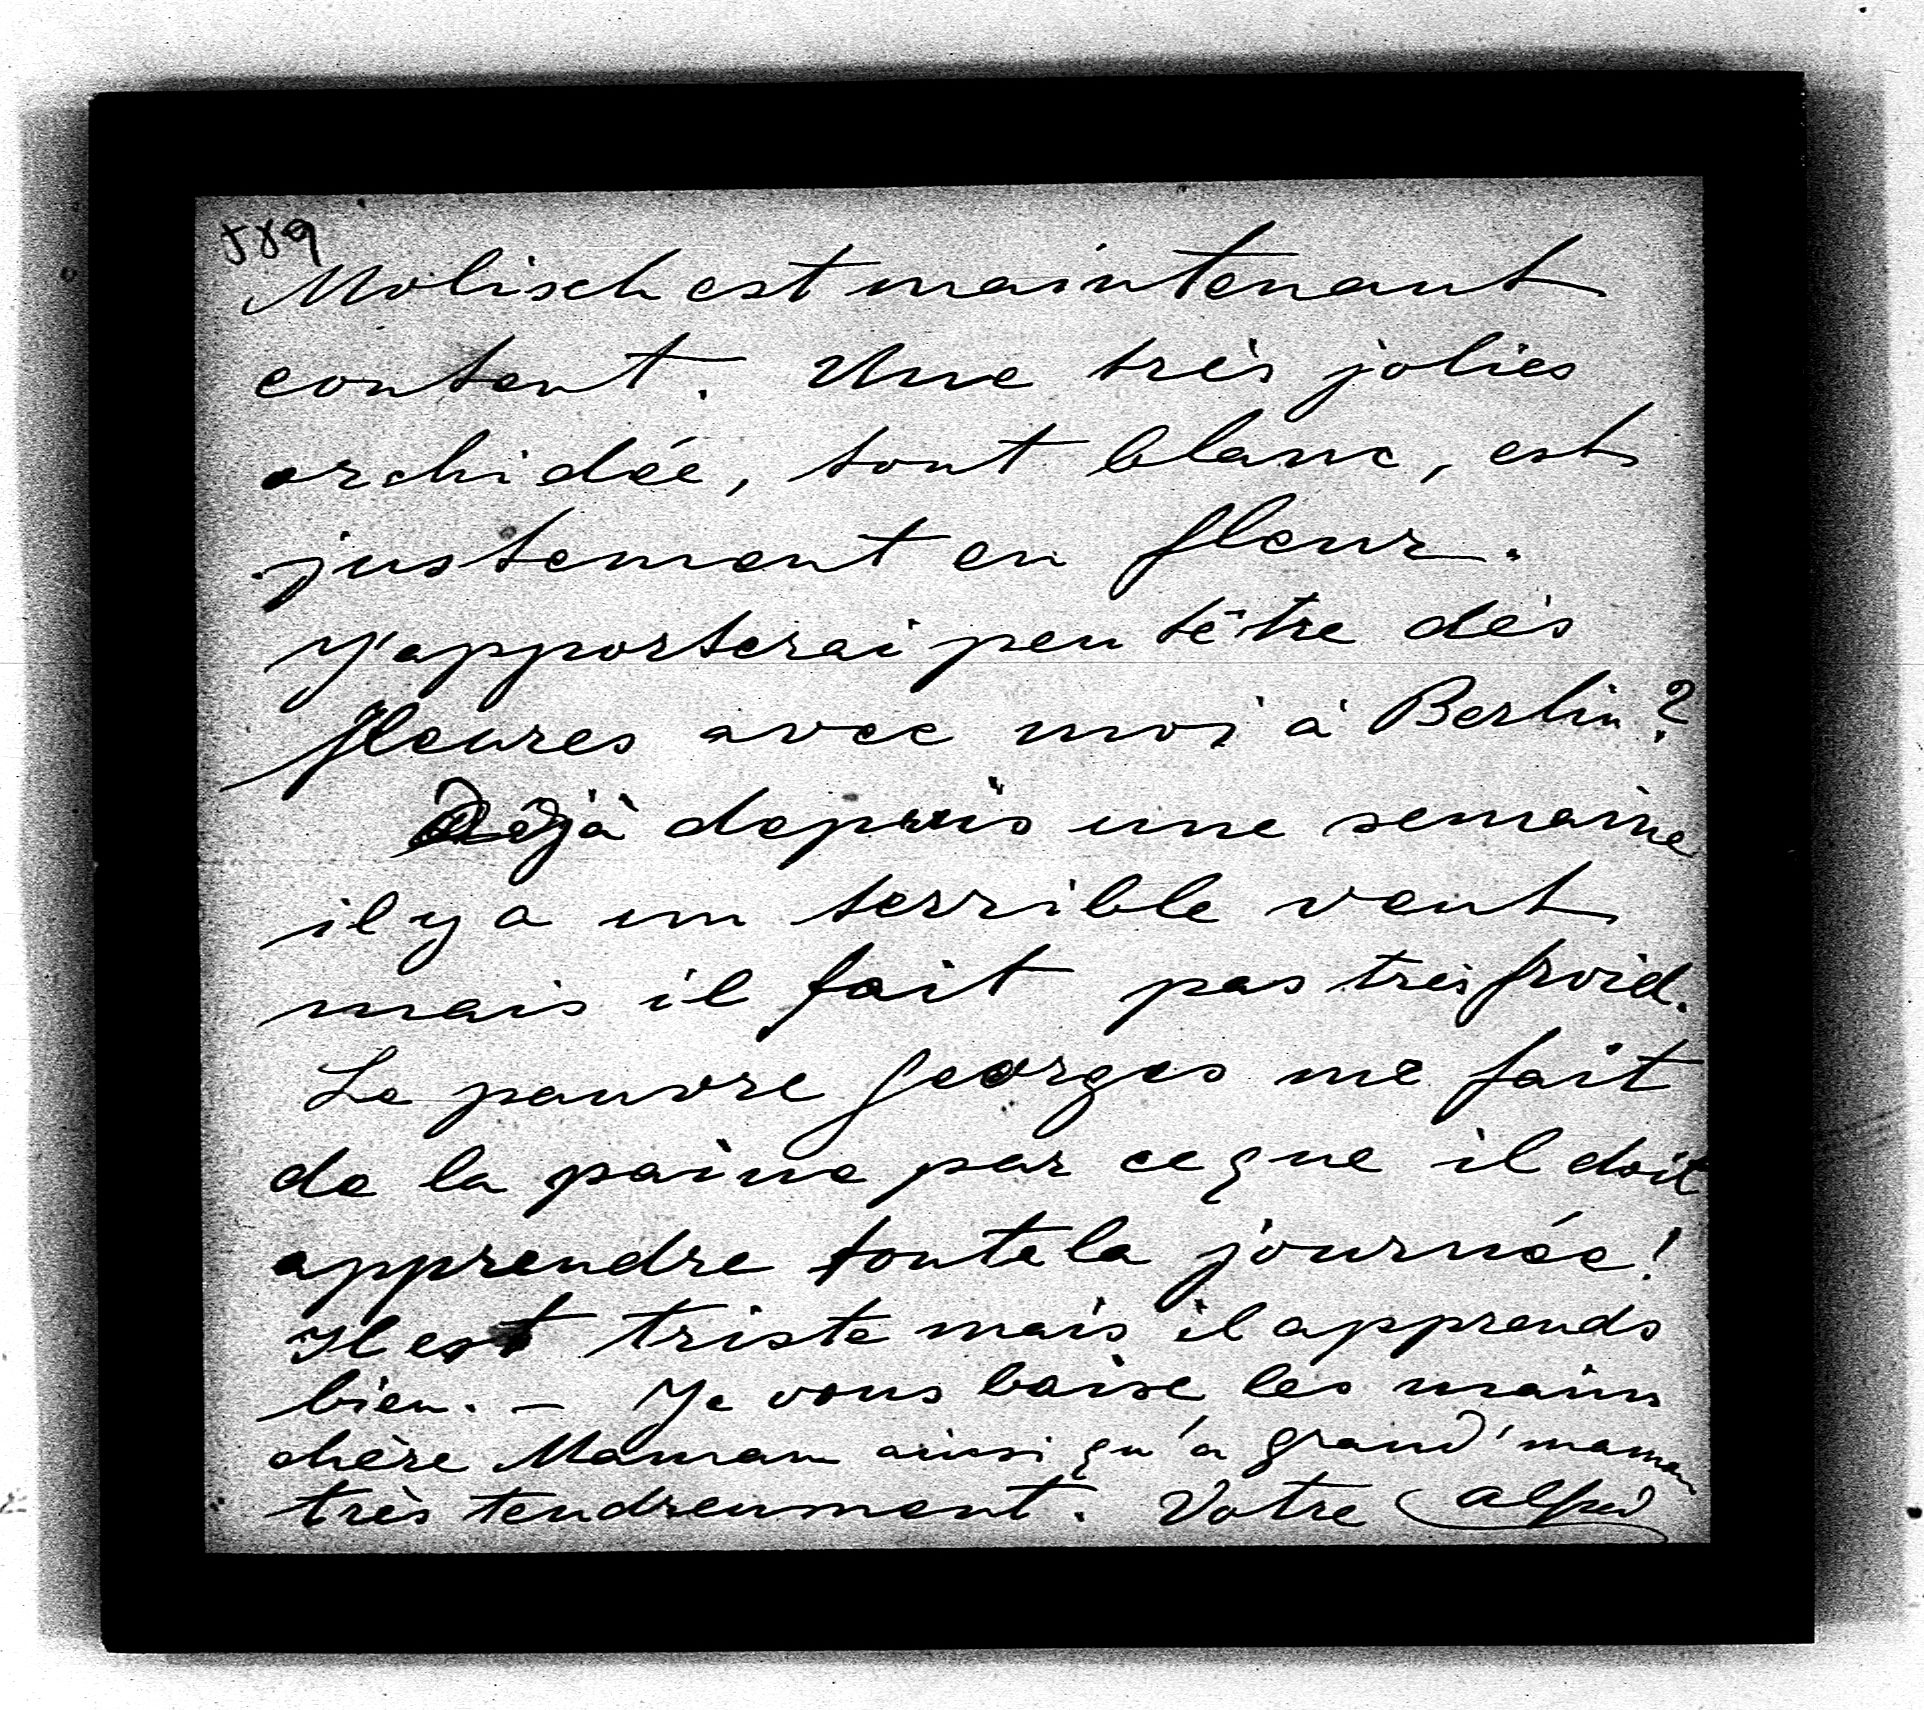 589
Molisch est maintenant
content. Une très jolies
orchidée, tout blanc, est
justement en fleur.
J'apporterai peu têtre dés
fleures avec moi à Berlin?
Déjà depuis une semaine
il y a un terrible vent
mais il fait pas très froid.
Le pauvre Georges me fait
de la paine par ce que il doit
apprendre toute la journée!
Il est triste mais il apprends
bien. – Je vous baise les mains
chère Maman ainsi qu'a grand'maman
très tendreument. Votre Alfred